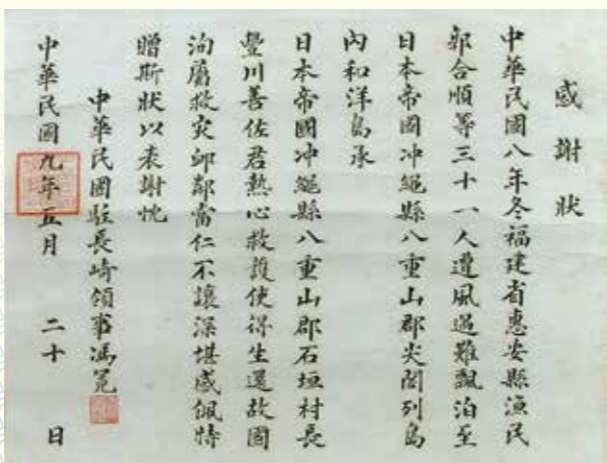 感謝狀
中華民國八年冬福建省惠安縣漁民
郭合順等三十一人遭風遇難飄泊至
日本帝國冲繩縣八重山郡尖閣列島
內和洋島承
日本帝國冲繩縣八重山郡石垣村長
豐川善佐君熱心救護使得生還故國
洵屬救災卹鄰當仁不讓深堪感佩特
贈斯狀以表謝忱
中華民國駐長崎領事馮冕
中華民國九年五月 二十 日